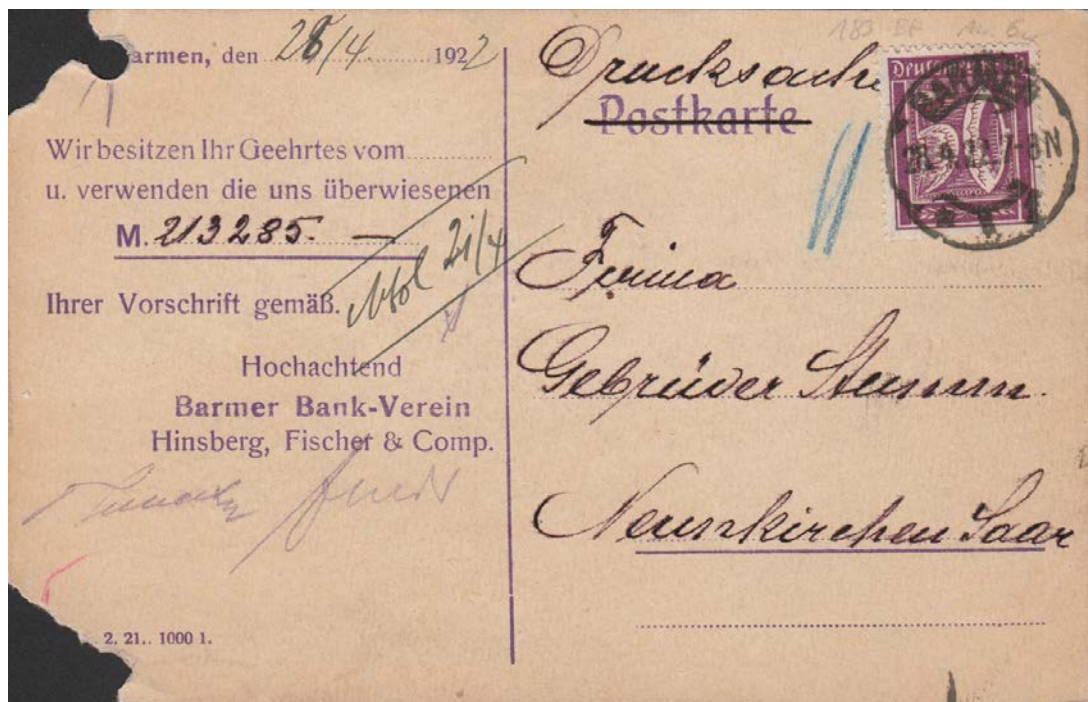 armen, den 28/4 1922
Wir besitzen Ihr Geehrtes vom
u. verwenden die uns überwiesenen
M. 213285. —
Ihrer Vorschrift gemäß.
21/4
Hochachtend
Barmer Bank-Verein
Hinsberg, Fischer & Comp.
2. 21.. 1000 1.
Drucksache
Postkarte
183
50
BARMEN
28.4.22.7-8N
* T 1
Firma
Gebrüder Stumm
Neunkirchen Saar